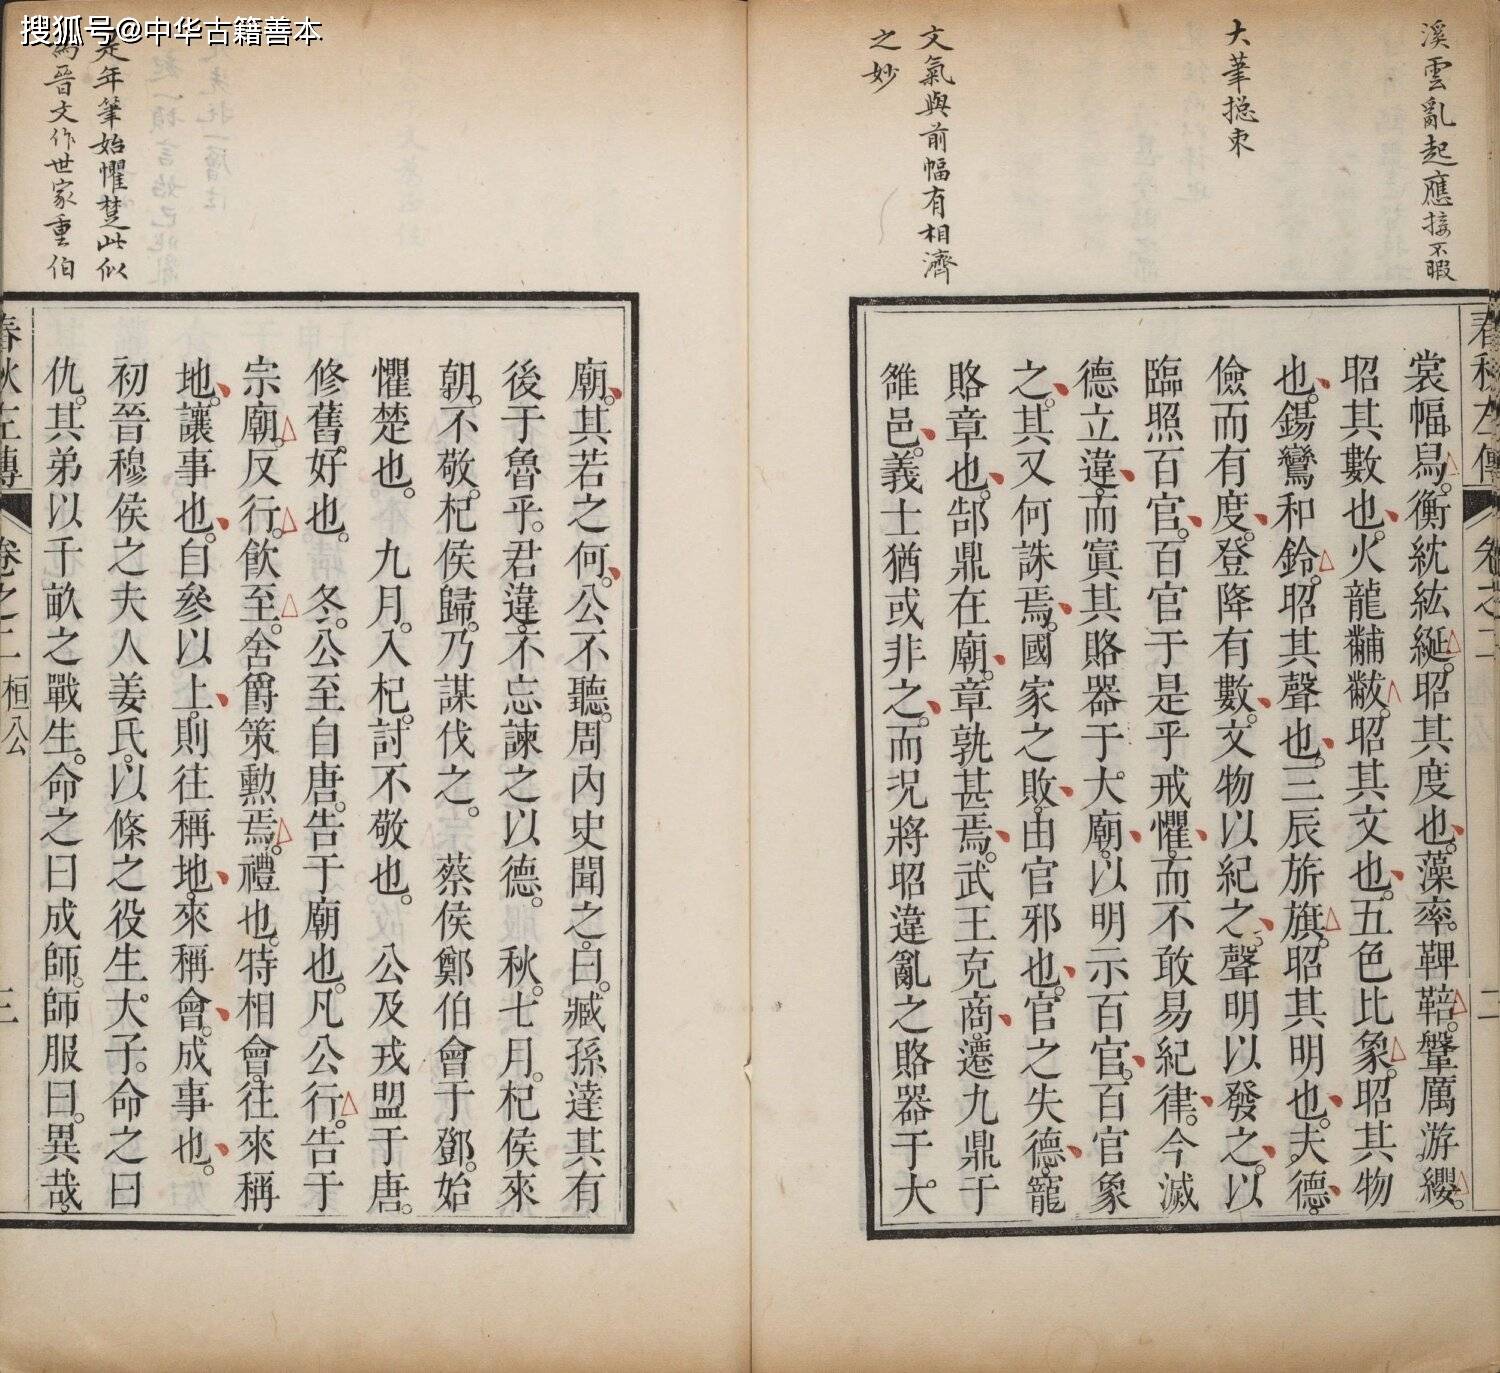 搜狐号@中华古籍善本
溪雲亂起應接不暇
大筆摠束
文氣與前幅有相濟
之妙
春秋左傳 卷之二 二
裳幅舄衡紞紘綖昭其度也藻率鞞鞛鞶厲游纓
昭其數也火龍黼黻昭其文也五色比象昭其物
也鍚鸞和鈴昭其聲也三辰旂旗昭其明也夫德
儉而有度登降有數文物以紀之聲明以發之以
臨照百官百官于是乎戒懼而不敢易紀律今滅
德立違而寘其賂器于大廟以明示百官百官象
之其又何誅焉國家之敗由官邪也官之失德寵
賂章也郜鼎在廟章孰甚焉武王克商遷九鼎于
雒邑義士猶或非之而況將昭違亂之賂器于大
是年筆始懼楚此似
為晉文作世家重伯
廟其若之何公不聽周內史聞之曰臧孫達其有
後于魯乎君違不忘諫之以德 秋七月杞侯來
朝不敬杞侯歸乃謀伐之 蔡侯鄭伯會于鄧始
懼楚也 九月入杞討不敬也 公及戎盟于唐
修舊好也 冬公至自唐告于廟也凡公行告于
宗廟反行飲至舍爵策勳焉禮也特相會往來稱
地讓事也自參以上則往稱地來稱會成事也
初晉穆侯之夫人姜氏以條之役生大子命之曰
仇其弟以千畝之戰生命之曰成師師服曰異哉
春秋左傳 卷之二 桓公 三